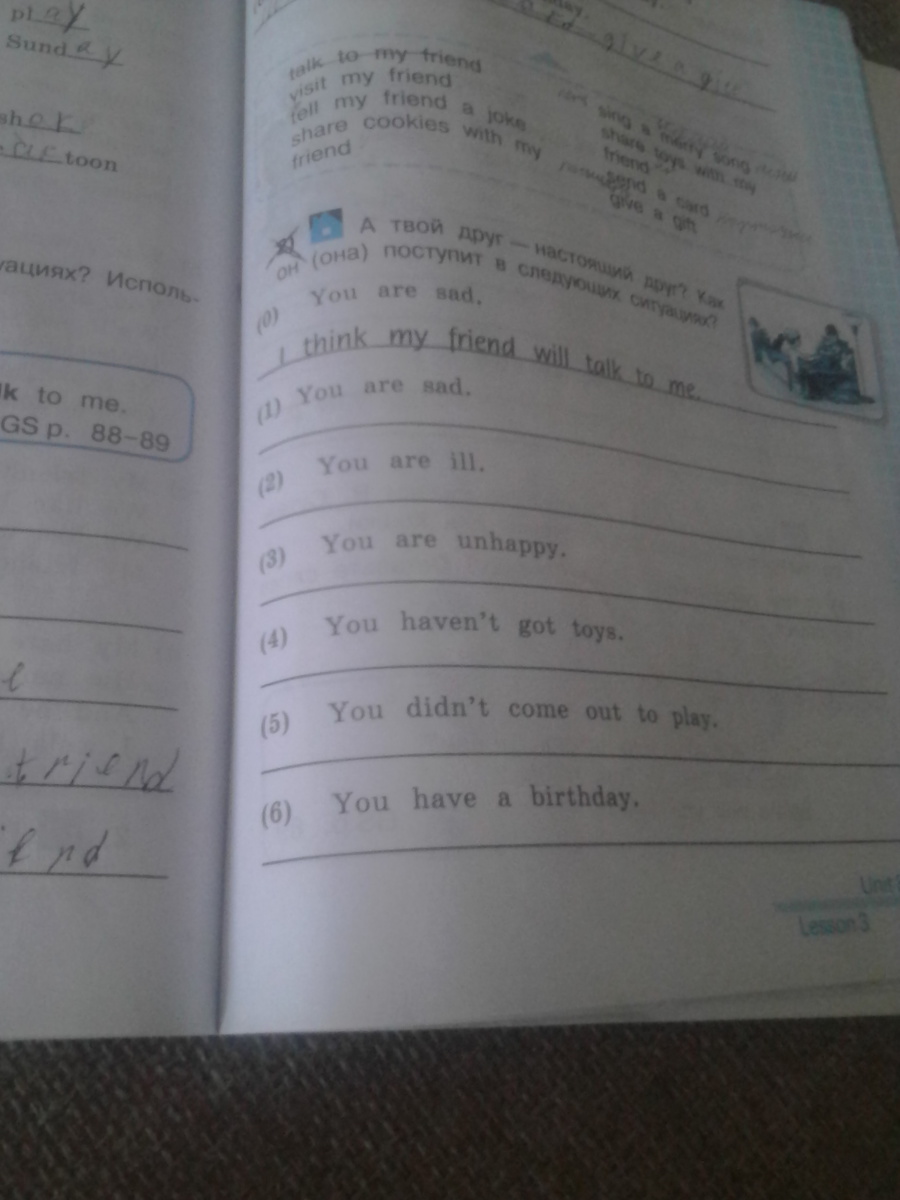 play
Sunday
talk to my friend
visit my friend
tell my friend a joke
share cookies with my
friend
give a
sing a merry song
share toys with my
friend
send a card
give a gift
toon
уациях? Исполь-
k to me.
GS p. 88–89
friend
А твой друг — настоящий друг? Как
он (она) поступит в следующих ситуациях?
(0) You are sad.
I think my friend will talk to me.
(1) You are sad.
(2) You are ill.
(3) You are unhappy.
(4) You haven't got toys.
(5) You didn't come out to play.
(6) You have a birthday.
Unit
Lesson 3